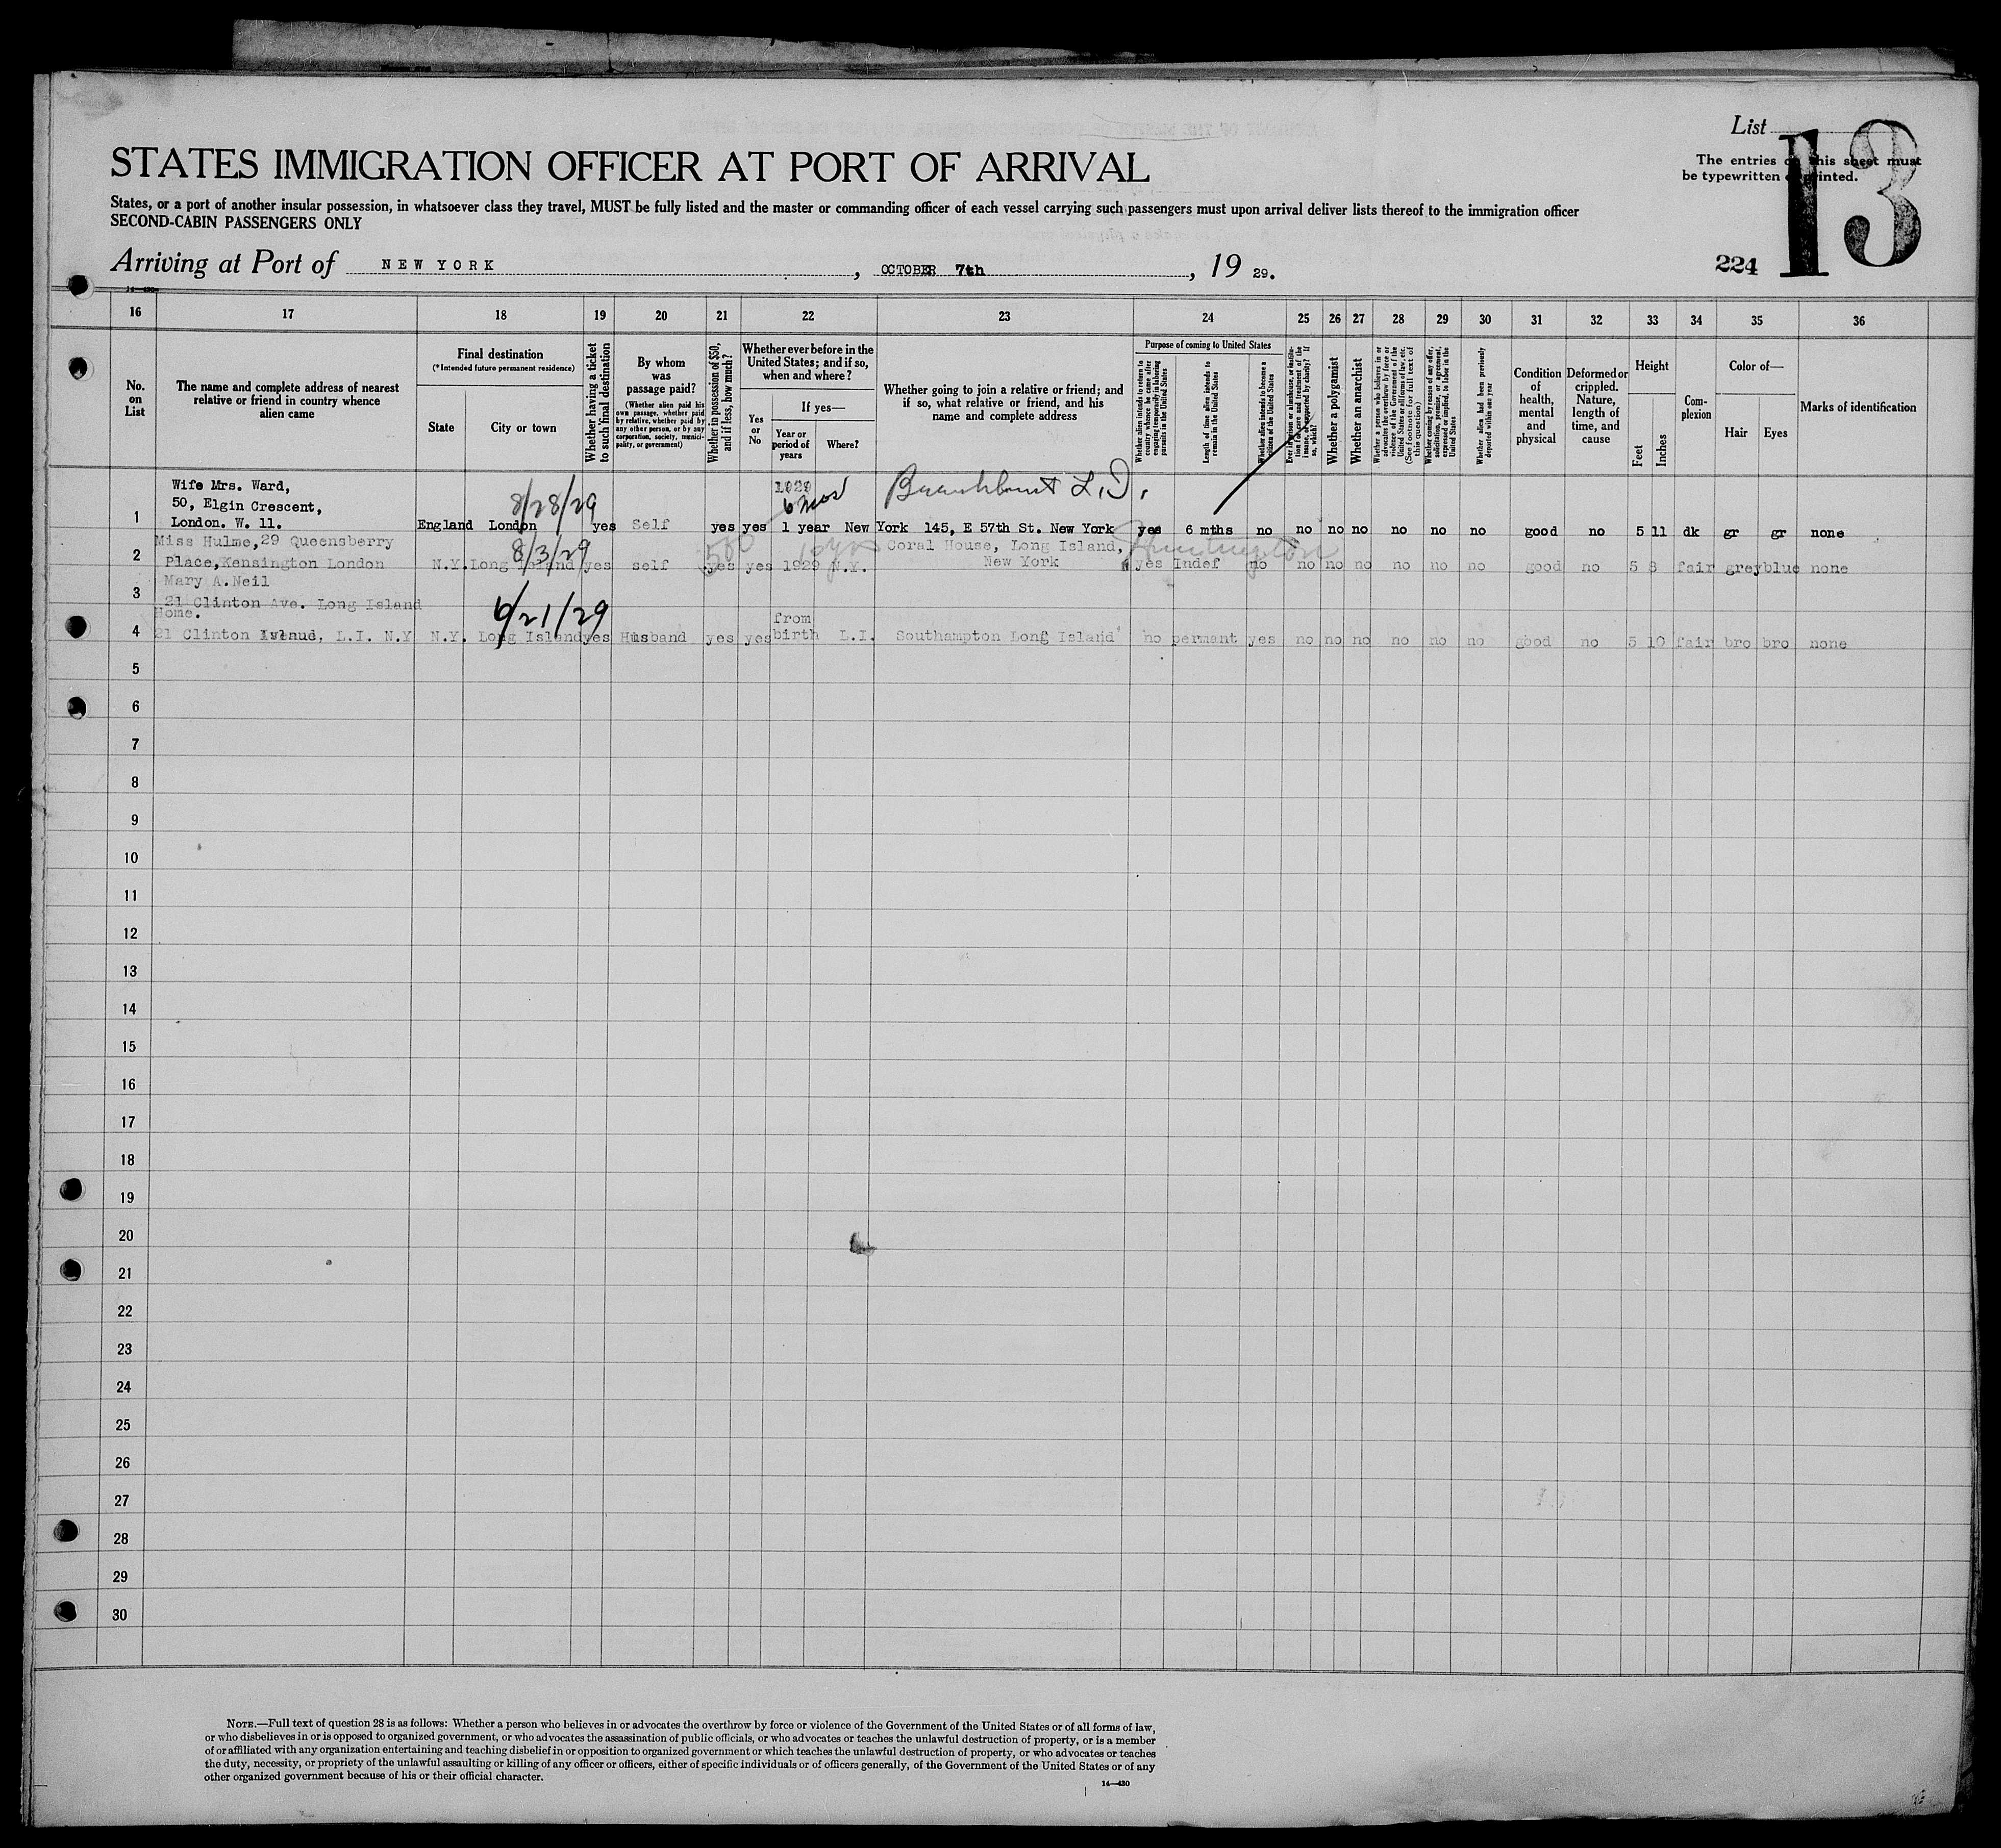 List 13
The entries on this sheet must
be typewritten or printed.
STATES IMMIGRATION OFFICER AT PORT OF ARRIVAL
States, or a port of another insular possession, in whatsoever class they travel, MUST be fully listed and the master or commanding officer of each vessel carrying such passengers must upon arrival deliver lists thereof to the immigration officer
SECOND-CABIN PASSENGERS ONLY
Arriving at Port of NEW YORK, OCTOBER 7th, 19 29.
224
14—430
16 17 18 19 20 21 22 23 24 25 26 27 28 29 30 31 32 33 34 35 36
No. on List
The name and complete address of nearest relative or friend in country whence alien came
Final destination
(*Intended future permanent residence)
State
City or town
Whether having a ticket to such final destination
By whom was passage paid?
(Whether alien paid his own passage, whether paid by relative, whether paid by any other person, or by any corporation, society, municipality, or government)
Whether in possession of $50, and if less, how much?
Whether ever before in the United States; and if so, when and where?
Yes or No
If yes—
Year or period of years
Where?
Whether going to join a relative or friend; and if so, what relative or friend, and his name and complete address
Purpose of coming to United States
Whether alien intends to return to country whence he came after engaging temporarily in laboring pursuits in the United States
Length of time alien intends to remain in the United States
Whether alien intends to become a citizen of the United States
Whether a polygamist
Whether an anarchist
Whether a person who believes in or advocates the overthrow by force or violence of the Government of the United States or all forms of law, etc. (See footnote for full text of this question)
Whether coming by reason of any offer, solicitation, promise, or agreement, expressed or implied, to labor in the United States
Whether alien had been previously deported within one year
Condition of health, mental and physical
Deformed or crippled. Nature, length of time, and cause
Height
Feet
Inches
Complexion
Color of—
Hair
Eyes
Marks of identification
Wife Mrs. Ward,
50, Elgin Crescent,
8/28/29
1929
6 mos
L.I.
1 London. W. 11. England London yes Self yes yes 1 year New York 145, E 57th St. New York yes 6 mths no no no no no no no good no 5 11 dk gr gr none
Miss Hulme, 29 Queensberry 8/3/29 500 Coral House, Long Island, Huntington
2 Place, Kensington London N.Y. Long Island yes self yes yes 1929 N.Y. New York yes Indef no no no no no no no good no 5 8 fair grey blue none
Mary A. Neil
3 21 Clinton Ave. Long Island
Home. 6/21/29 from
4 21 Clinton L.I. N.Y N.Y. Long Island yes Husband yes yes birth L.I. Southampton Long Island no permant yes no no no no no no good no 5 10 fair bro bro none
5
6
7
8
9
10
11
12
13
14
15
16
17
18
19
20
21
22
23
24
25
26
27
28
29
30
NOTE.—Full text of question 28 is as follows: Whether a person who believes in or advocates the overthrow by force or violence of the Government of the United States or of all forms of law,
or who disbelieves in or is opposed to organized government, or who advocates the assassination of public officials, or who advocates or teaches the unlawful destruction of property, or is a member
of or affiliated with any organization entertaining and teaching disbelief in or opposition to organized government or which teaches the unlawful destruction of property, or who advocates or teaches
the duty, necessity, or propriety of the unlawful assaulting or killing of any officer or officers, either of specific individuals or of officers generally, of the Government of the United States or of any
other organized government because of his or their official character.
14—430